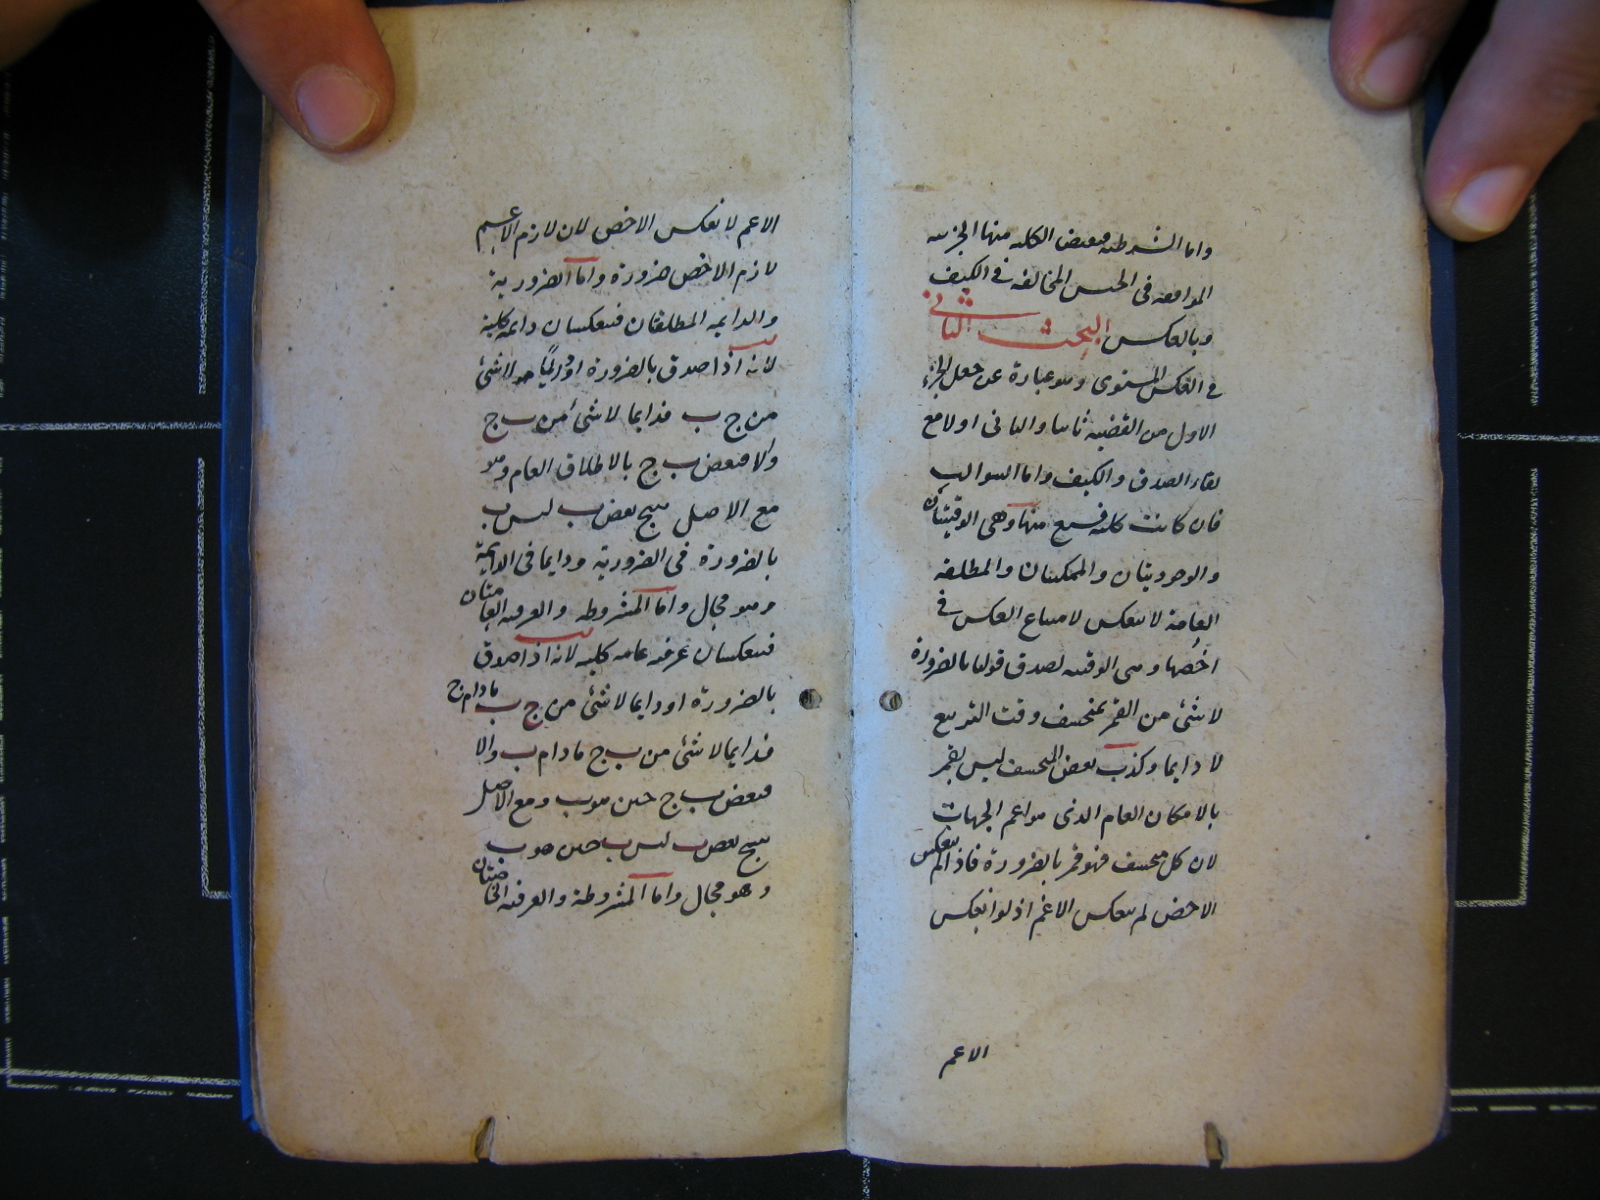 واما الشرطية فنقيض الكلية منها الجزئية
الموافقة فى الجنس المخالفة فى الكيف
وبالعكس البحث الثانى
فى العكس المستوى وهو عبارة عن جعل الجزء
الاول من القضية ثانيا والثانى اولا مع
بقاء الصدق والكيف واما السوالب
فان كانت كلية فسبع منها وهى الوقتيتان
والوجوديتان والممكنتان والمطلقة
العامة لا تنعكس لامتناع العكس فى
اخصها وهى الوقتية لصدق قولنا بالضرورة
لا شئ من القمر بمنخسف وقت التربيع
لا دايما وكذب بعض المنخسف ليس بقمر
بالامكان العام الذى هو اعم الجهات
لان كل منخسف فهو قمر بالضرورة فاذا لم ينعكس
الاخص لم ينعكس الاعم اذ لو انعكس
الاعم
الاعم لانعكس الاخص لان لازم الاعم
لازم الاخص ضرورة واما الضرورية
والدايمة المطلقتان فتنعكسان دايمة كلية
لانه اذا صدق بالضرورة او دايما لا شئ
من ج ب فدايما لا شئ من ب ج
والا فبعض ب ج بالاطلاق العام وهو
مع الاصل ينتج بعض ب ليس ب
بالضرورة فى الضرورية ودايما فى الدايمة
وهو محال واما المشروطة والعرفية العامتان
فتنعكسان عرفية عامة كلية لانه اذا صدق
بالضرورة او دايما لا شئ من ج ب مادام ج
فدايما لا شئ من ب ج مادام ب والا
فبعض ب ج حين هو ب ومع الاصل
ينتج بعض ب ليس ب حين هو ب
وهو محال واما المشروطة والعرفية الخاصتان